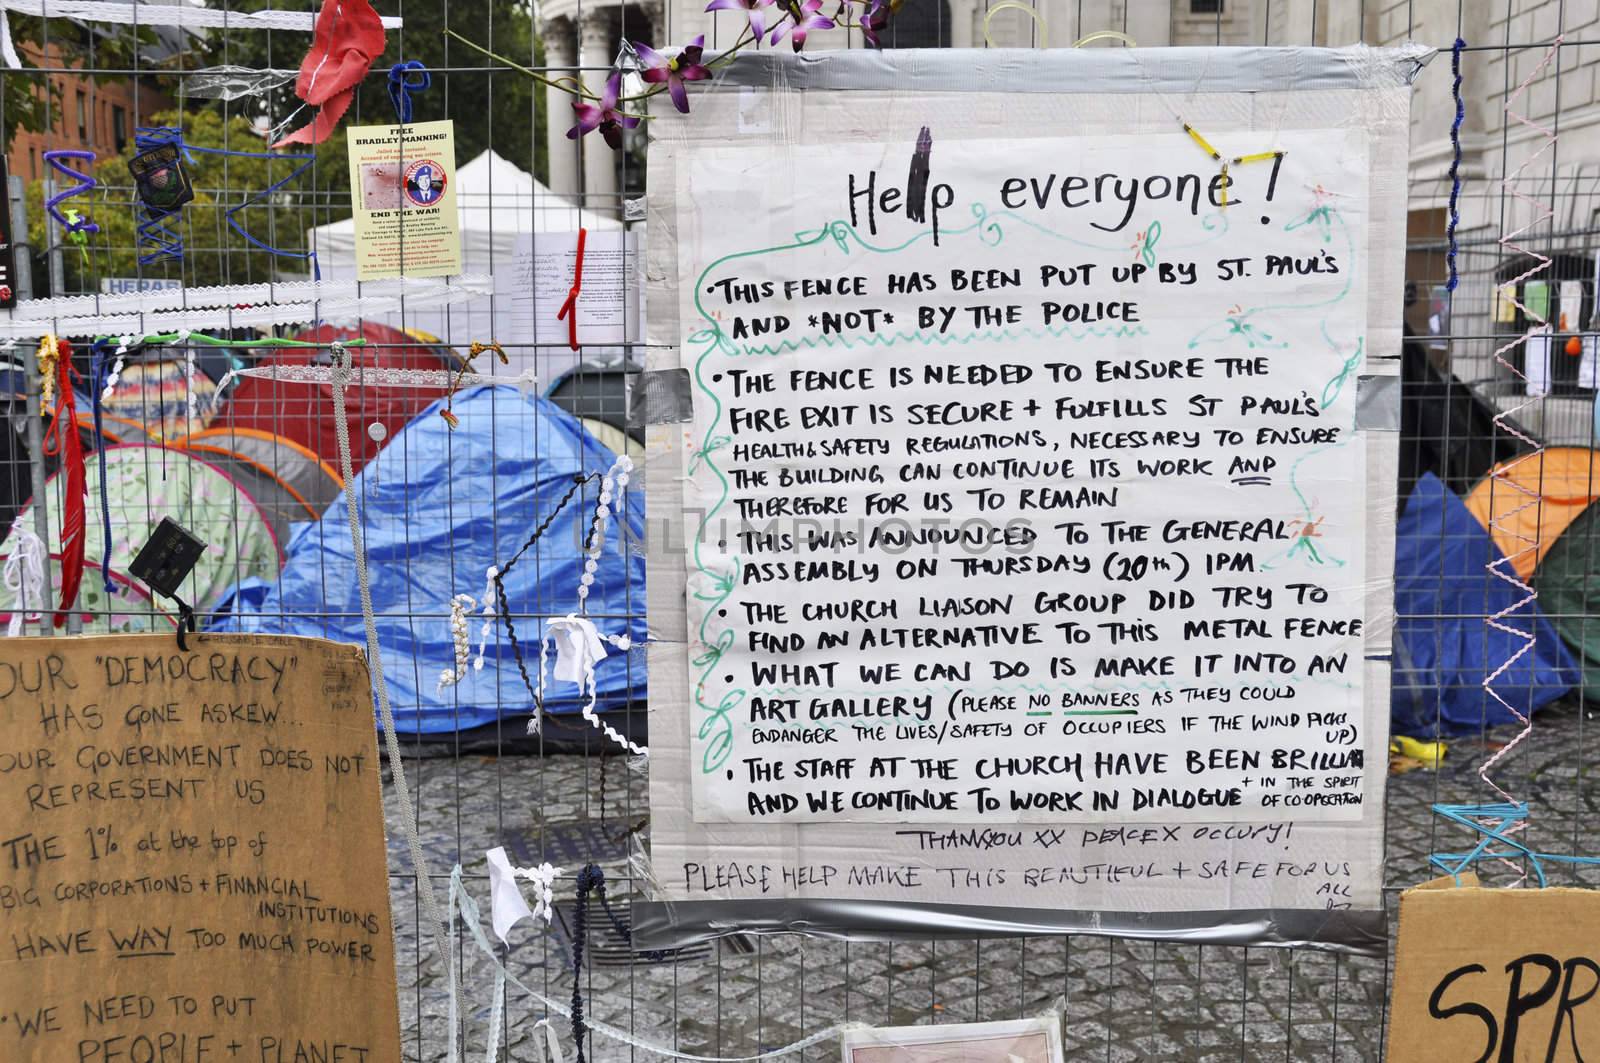 FREE
BRADLEY MANNING!
Jailed and tortured
Accused of exposing war crimes
END THE WAR!
HERAB
Help everyone!
• THIS FENCE HAS BEEN PUT UP BY ST. PAUL'S
AND *NOT* BY THE POLICE
• THE FENCE IS NEEDED TO ENSURE THE
FIRE EXIT IS SECURE + FULFILLS ST PAUL'S
HEALTH & SAFETY REGULATIONS, NECESSARY TO ENSURE
THE BUILDING CAN CONTINUE ITS WORK AND
THEREFORE FOR US TO REMAIN
• THIS WAS ANNOUNCED TO THE GENERAL
ASSEMBLY ON THURSDAY (20th) 1PM.
• THE CHURCH LIASON GROUP DID TRY TO
FIND AN ALTERNATIVE TO THIS METAL FENCE
• WHAT WE CAN DO IS MAKE IT INTO AN
ART GALLERY (PLEASE NO BANNERS AS THEY COULD
ENDANGER THE LIVES/SAFETY OF OCCUPIERS IF THE WIND PICKS
UP)
• THE STAFF AT THE CHURCH HAVE BEEN
AND WE CONTINUE TO WORK IN DIALOGUE + IN THE SPIRIT
OF CO-OPERATION
THANKYOU XX PEACE X OCCUPY!
PLEASE HELP MAKE THIS BEAUTIFUL + SAFE FOR US
ALL
OUR "DEMOCRACY"
HAS GONE ASKEW...
OUR GOVERNMENT DOES NOT
REPRESENT US
THE 1% at the top of
BIG CORPORATIONS + FINANCIAL
INSTITUTIONS
HAVE WAY TOO MUCH POWER
• WE NEED TO PUT
PEOPLE + PLANET
SPR
UNLIMPHOTOS